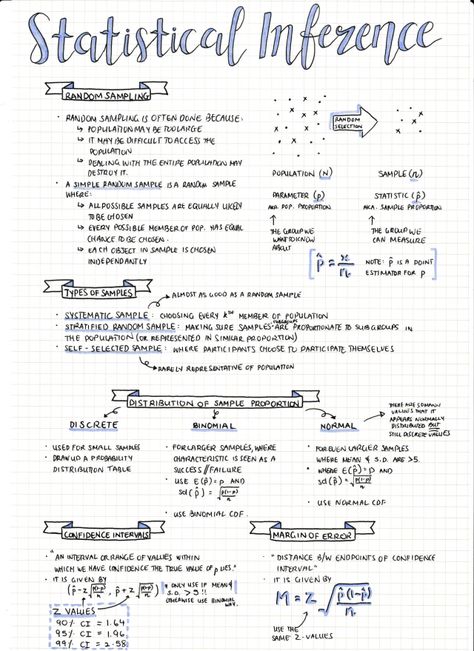 Statistical Inference
RANDOM SAMPLING
• RANDOM SAMPLING IS OFTEN DONE BECAUSE:
↳ POPULATION MAY BE TOO LARGE
↳ IT MAY BE DIFFICULT TO ACCESS THE
POPULATION
↳ DEALING WITH THE ENTIRE POPULATION MAY
DESTROY IT.
• A SIMPLE RANDOM SAMPLE IS A RANDOM SAMPLE
WHERE:
↳ ALL POSSIBLE SAMPLES ARE EQUALLY LIKELY
TO BE CHOSEN
↳ EVERY POSSIBLE MEMBER OF POP. HAS EQUAL
CHANCE TO BE CHOSEN.
↳ EACH OBJECT IN SAMPLE IS CHOSEN
INDEPENDANTLY
RANDOM
SELECTION
POPULATION (N)
SAMPLE (n)
PARAMETER (p)
AKA. POP. PROPORTION
STATISTIC (p̂)
AKA. SAMPLE PROPORTION
THE GROUP WE
WANT TO KNOW
ABOUT
THE GROUP WE
CAN MEASURE
NOTE: p̂ IS A POINT
ESTIMATOR FOR p
TYPES OF SAMPLES
ALMOST AS GOOD AS A RANDOM SAMPLE
• SYSTEMATIC SAMPLE: CHOOSING EVERY kTH MEMBER OF POPULATION
• STRATIFIED RANDOM SAMPLE: MAKING SURE SAMPLES ARE PROPORTIONATE TO SUBGROUPS IN
THE POPULATION (OR REPRESENTED IN SIMILAR PROPORTION)
• SELF-SELECTED SAMPLE: WHERE PARTICIPANTS CHOOSE TO PARTICIPATE THEMSELVES
RARELY REPRESENTATIVE OF POPULATION
DISTRIBUTION OF SAMPLE PROPORTION
DISCRETE
• USED FOR SMALL SAMPLES
• DRAW UP A PROBABILITY
DISTRIBUTION TABLE
BINOMIAL
• FOR LARGER SAMPLES, WHERE
CHARACTERISTIC IS SEEN AS A
SUCCESS//FAILURE
• USE E(p̂)=p AND
sd(p̂) = √(p(1-p)/n)
• USE BINOMIAL CDF.
NORMAL
THERE ARE SO MANY
VALUES THAT IT
APPEARS NORMALLY
DISTRIBUTED BUT
STILL DISCRETE VALUES
• FOR EVEN LARGER SAMPLES
WHERE MEAN & S.D. ARE >5.
• WHERE E(p̂)=p AND
sd(p̂) = √(p(1-p)/n)
• USE NORMAL CDF
CONFIDENCE INTERVALS
• "AN INTERVAL OR RANGE OF VALUES WITHIN
WHICH WE HAVE CONFIDENCE THE TRUE VALUE OF p LIES."
• IT IS GIVEN BY
(p̂-z√(p̂(1-p̂)/n), p̂+z√(p̂(1-p̂)/n))
* ONLY USE IF MEAN &
S.D. > 5!!
OTHERWISE USE BINOMIAL
WAY.
Z VALUES
90% CI = 1.64
95% CI = 1.96
99% CI = 2.58
MARGIN OF ERROR
• "DISTANCE B/W ENDPOINTS OF CONFIDENCE
INTERVAL"
• IT IS GIVEN BY
M = Z√(p̂(1-p̂)/n)
USE THE
SAME Z-VALUES